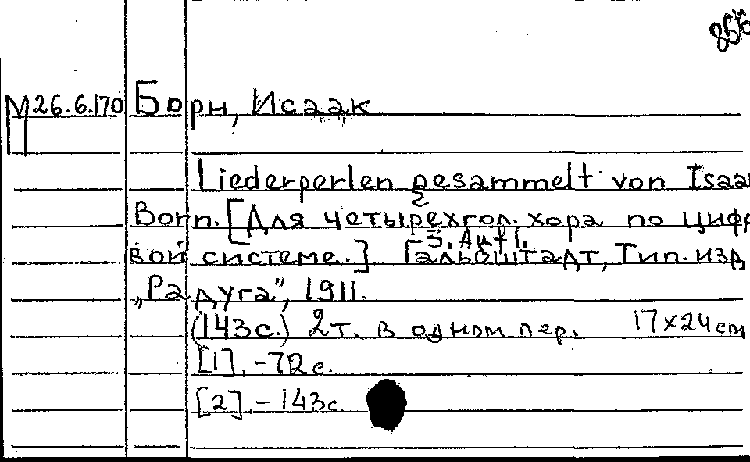 856
М 26.6.170 Борн, Исаак
Liederperlen gesammelt von Isaak
Born. [Для четырехгол. хора по цифро
вой системе.] 3. Aufl. Гальбштадт, Тип. изд.
„Радуга", 1911.
(143с.) 2т. в одном пер. 17x24 см
[1]. - 72 с.
[2]. - 143с.